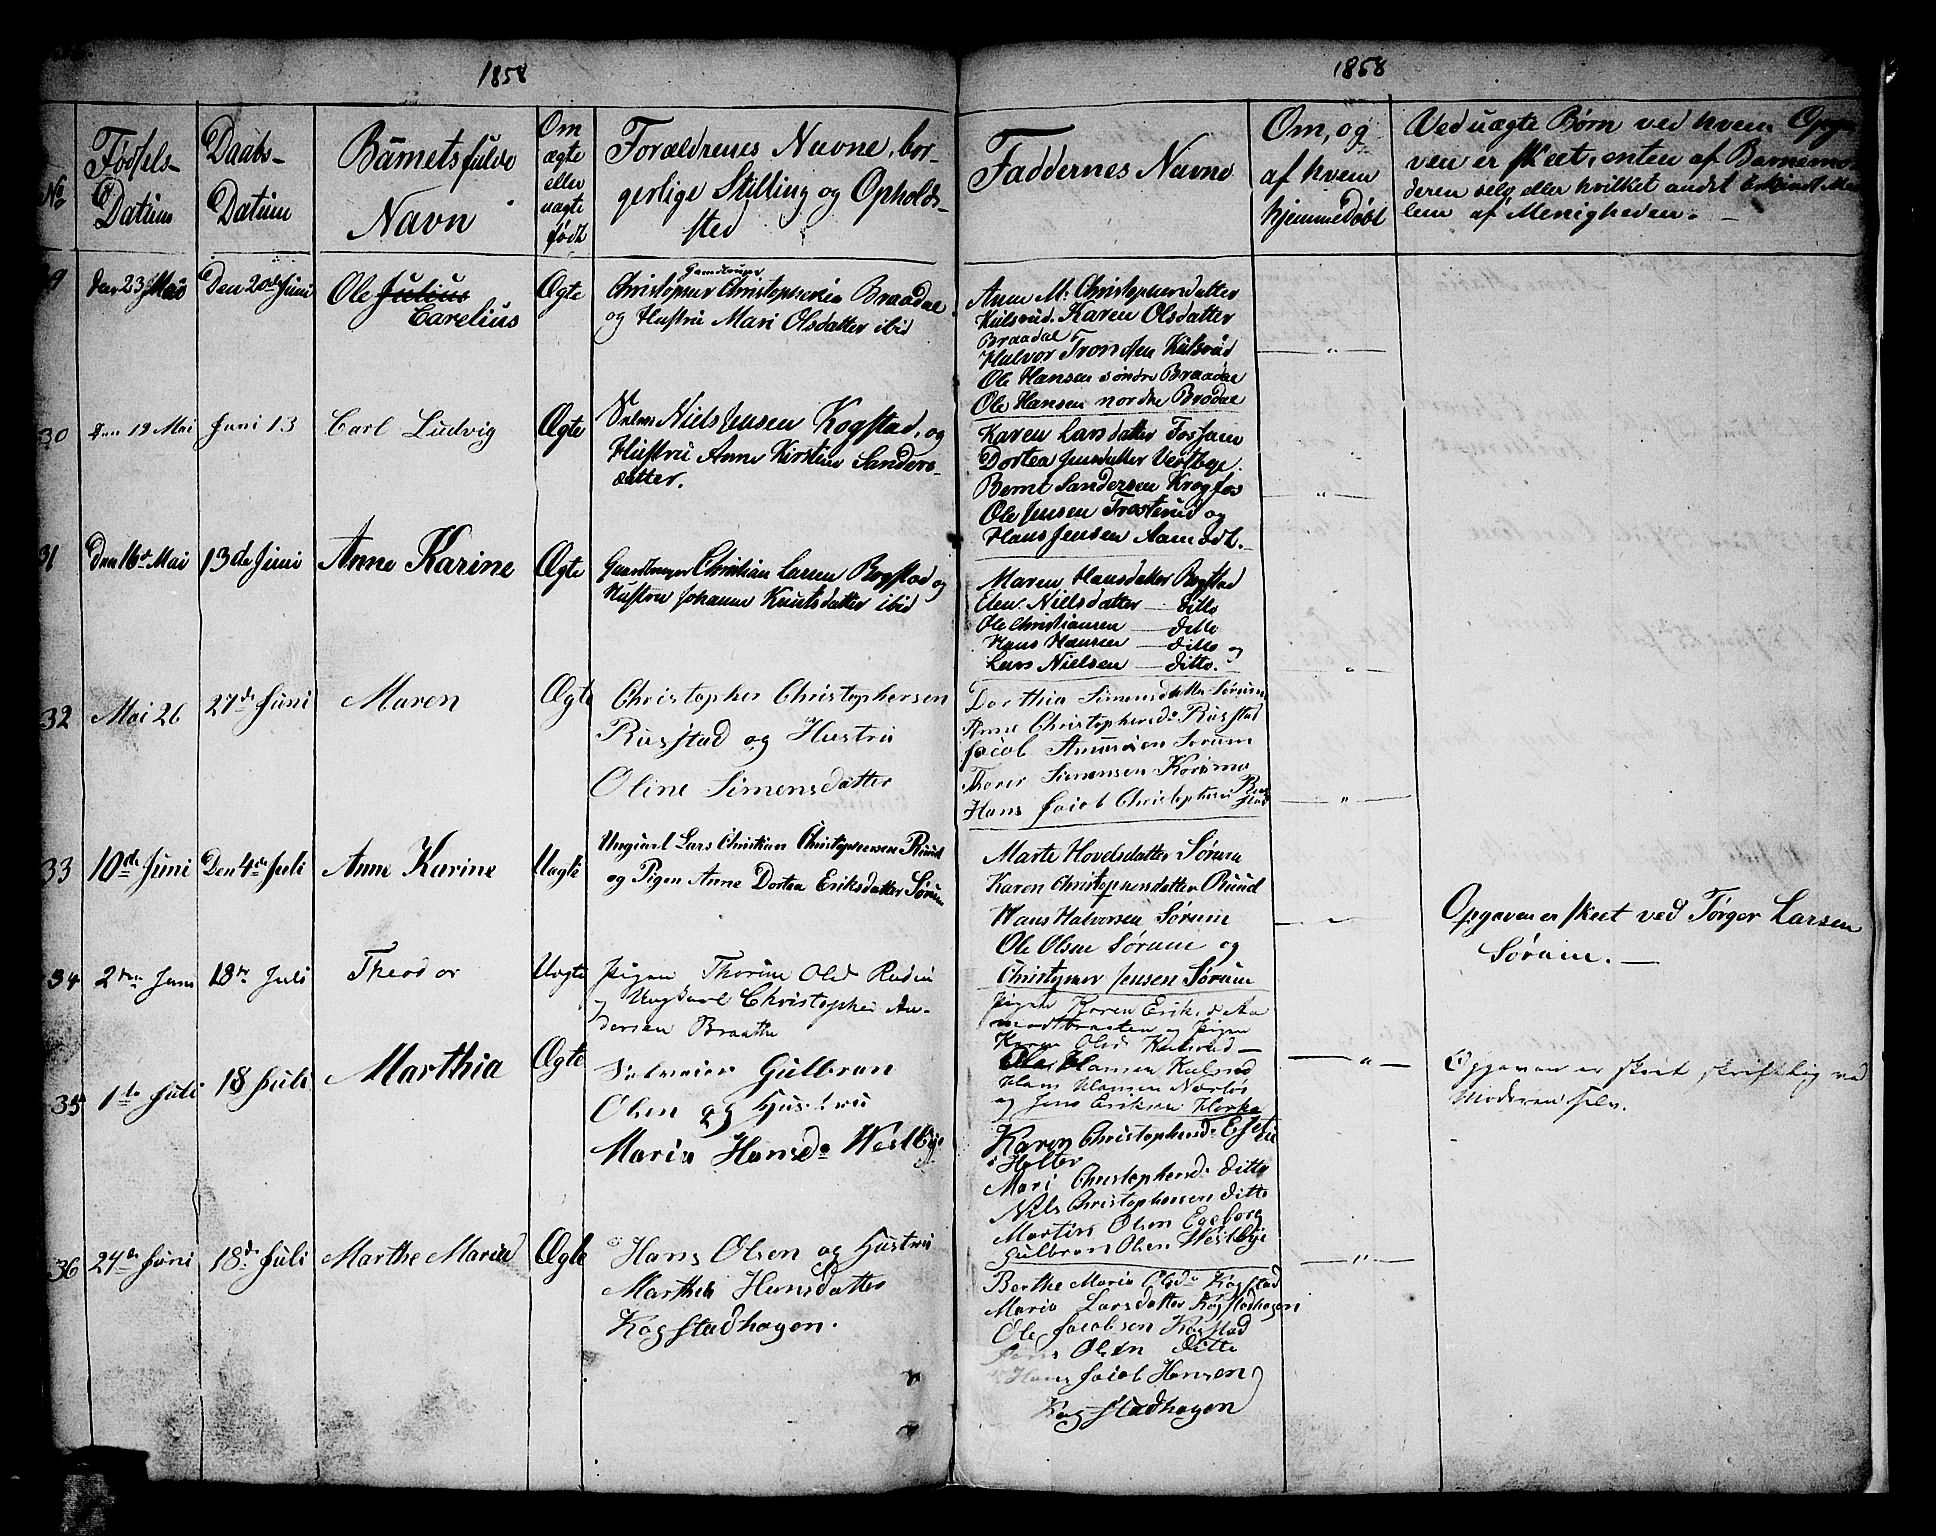 1858
No
Fødsels-
Datum
Daabs-
Datum
Barnets fulde
Navn
Om
ægte
eller
uagte
født
Forældrenes Navne, bor-
gerlige Stilling og Opholds-
sted
29
Den 23 Mai
Den 20de Juni
Ole Julius
Carelius
Ægte
Gaardbruger
Christopher Christophersen Braadal
og Hustru Mari Olsdatter ibid
30
Den 19 Mai
Juni 13
Carl Ludvig
Ægte
Niels Jensen Kogstad, og
Hustru Anne Kirstine Sanders-
datter.
31
Den 16de Mai
13de Juni
Anne Karine
Ægte
Gaardbruger Christian Larsen Bogstad og
Hustru Johanne Knutsdatter ibid
32
Mai 26
27de Juni
Maren
Ægte
Christopher Christophersen
Russtad og Hustru
Oline Simensdatter
33
10de Juni
Den 4de Juli
Anne Karine
Uagte
Ungkarl Lars Christian Christophersen Ruud
og Pigen Anne Dortea Eriksdatter Sørum
34
2den Juni
18de Juli
Theodor
Uagte
Pigen Thorine Olsd
og Ungkarl Christopher An-
dersen Braathe
35
1ste Juli
18 Juli
Marthia
Ægte
Gulbran
Olsen og Hustru
Maria Hansd. Westbye
36
24de Juni
18de Juli
Marthe Maria
Ægte
Hans Olsen og Hustru
Marthea Hansdatter
Kogstadhagen.
1858
Faddernes Navne
Om, og
af hvem
hjemmedøbt
Ved uagte Børn ved hvem Opga-
ven er skeet, enten af Barnemo-
deren selv eller hvilket andet
lem af Menigheden.
Anne M. Christophersdatter
Kulsrud. Karen Olsdatter
Braadal
Halvor Tronsen Kulsrud
Ole Hansen søndre Braadal
Ole Hansen nordre Brodal
Karen Larsdatter Fossum
Dortea Jensdatter Vestbye.
Bernt Sandersen Krogfos
Ole Jensen Trosterud og
Hans Jensen Aamodt.
Maren Hansdatter Bogstad
Elen Nielsdatter — ditto
Ole Christiansen — ditto
Hans Hansen — ditto og
Lars Nielsen — ditto.
Dorthia Simensdatter Sørum
Anne Christophersd. Russtad
Jacob Amundsen Sørum
Thorer Simensen Korsmo
Hans Jacob Christophersen Rus-
stad
Marte Hovelsdatter Sørum
Karen Christophersdatter Ruud
Hans Halvorsen Sørum
Ole Olsen Sørum og
Christopher Jensen Sørum
Opgaven er skeet ved Tørger Larsen
Sørum. —
Pigen Karen Eriksd. Aa-
modtbraaten og Pigen
Karen Olsd. Kulsrud —
Ole Hansen Kulsrud
Hans Hansen
og Jens Eriksen
Opgaven er skeet skriftlig ved
Moderen selv.
Karen Christophersd.
Holter
Mari Christophersd. ditto
Nils Christophersen ditto
Martin Olsen Egeborg
Gulbran Olsen Westbye
Berthe Maria Olsd. Kogstad
Maria Larsdatter Kogstadhagen
Ole Jacobsen Kogstad
Jens Olsen ditto
Hans Jacob Hansen
Kogstadhagen